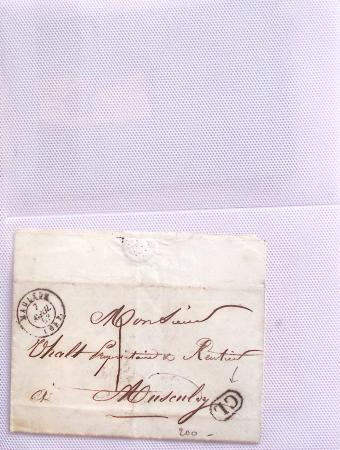 MAULEON
7
Monsieur
Thalt Propriétaire & Rentier
à Musculdy
CL
200 -